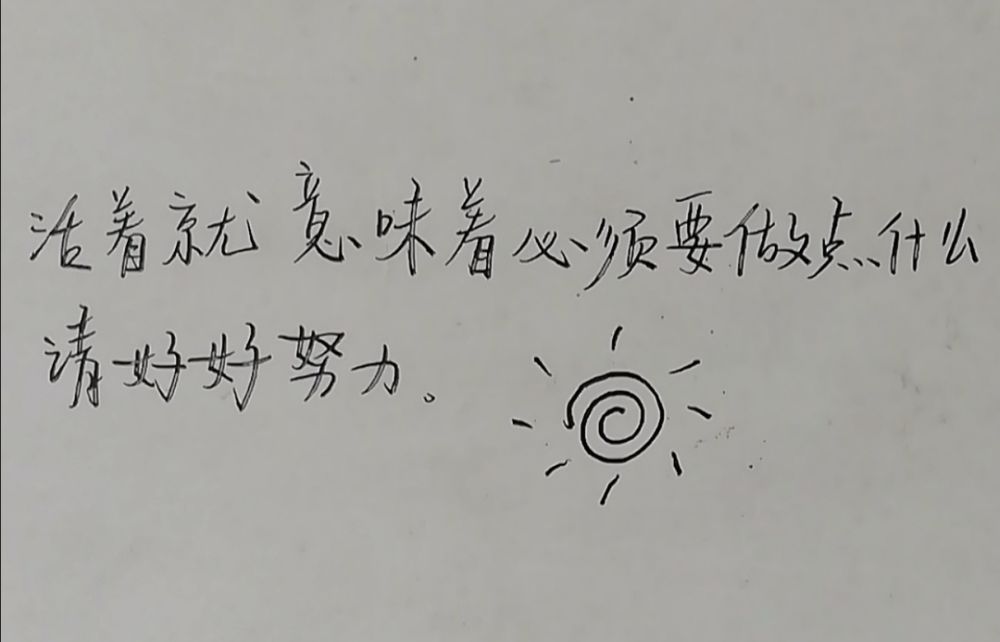 活着就意味着必须要做点什么
请好好努力。